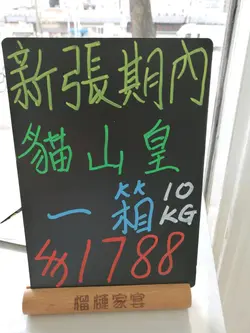 新張期內
貓山皇
一箱 10KG
$1788
榴槤家宴